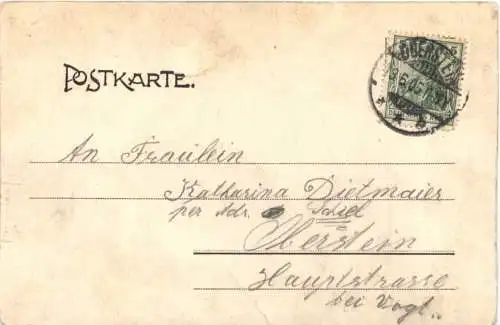 POSTKARTE.
OBERSTEIN
An Fräulein
Katharina Dietmaier
per Adr.
Oberstein
Hauptstrasse
bei Vogt.